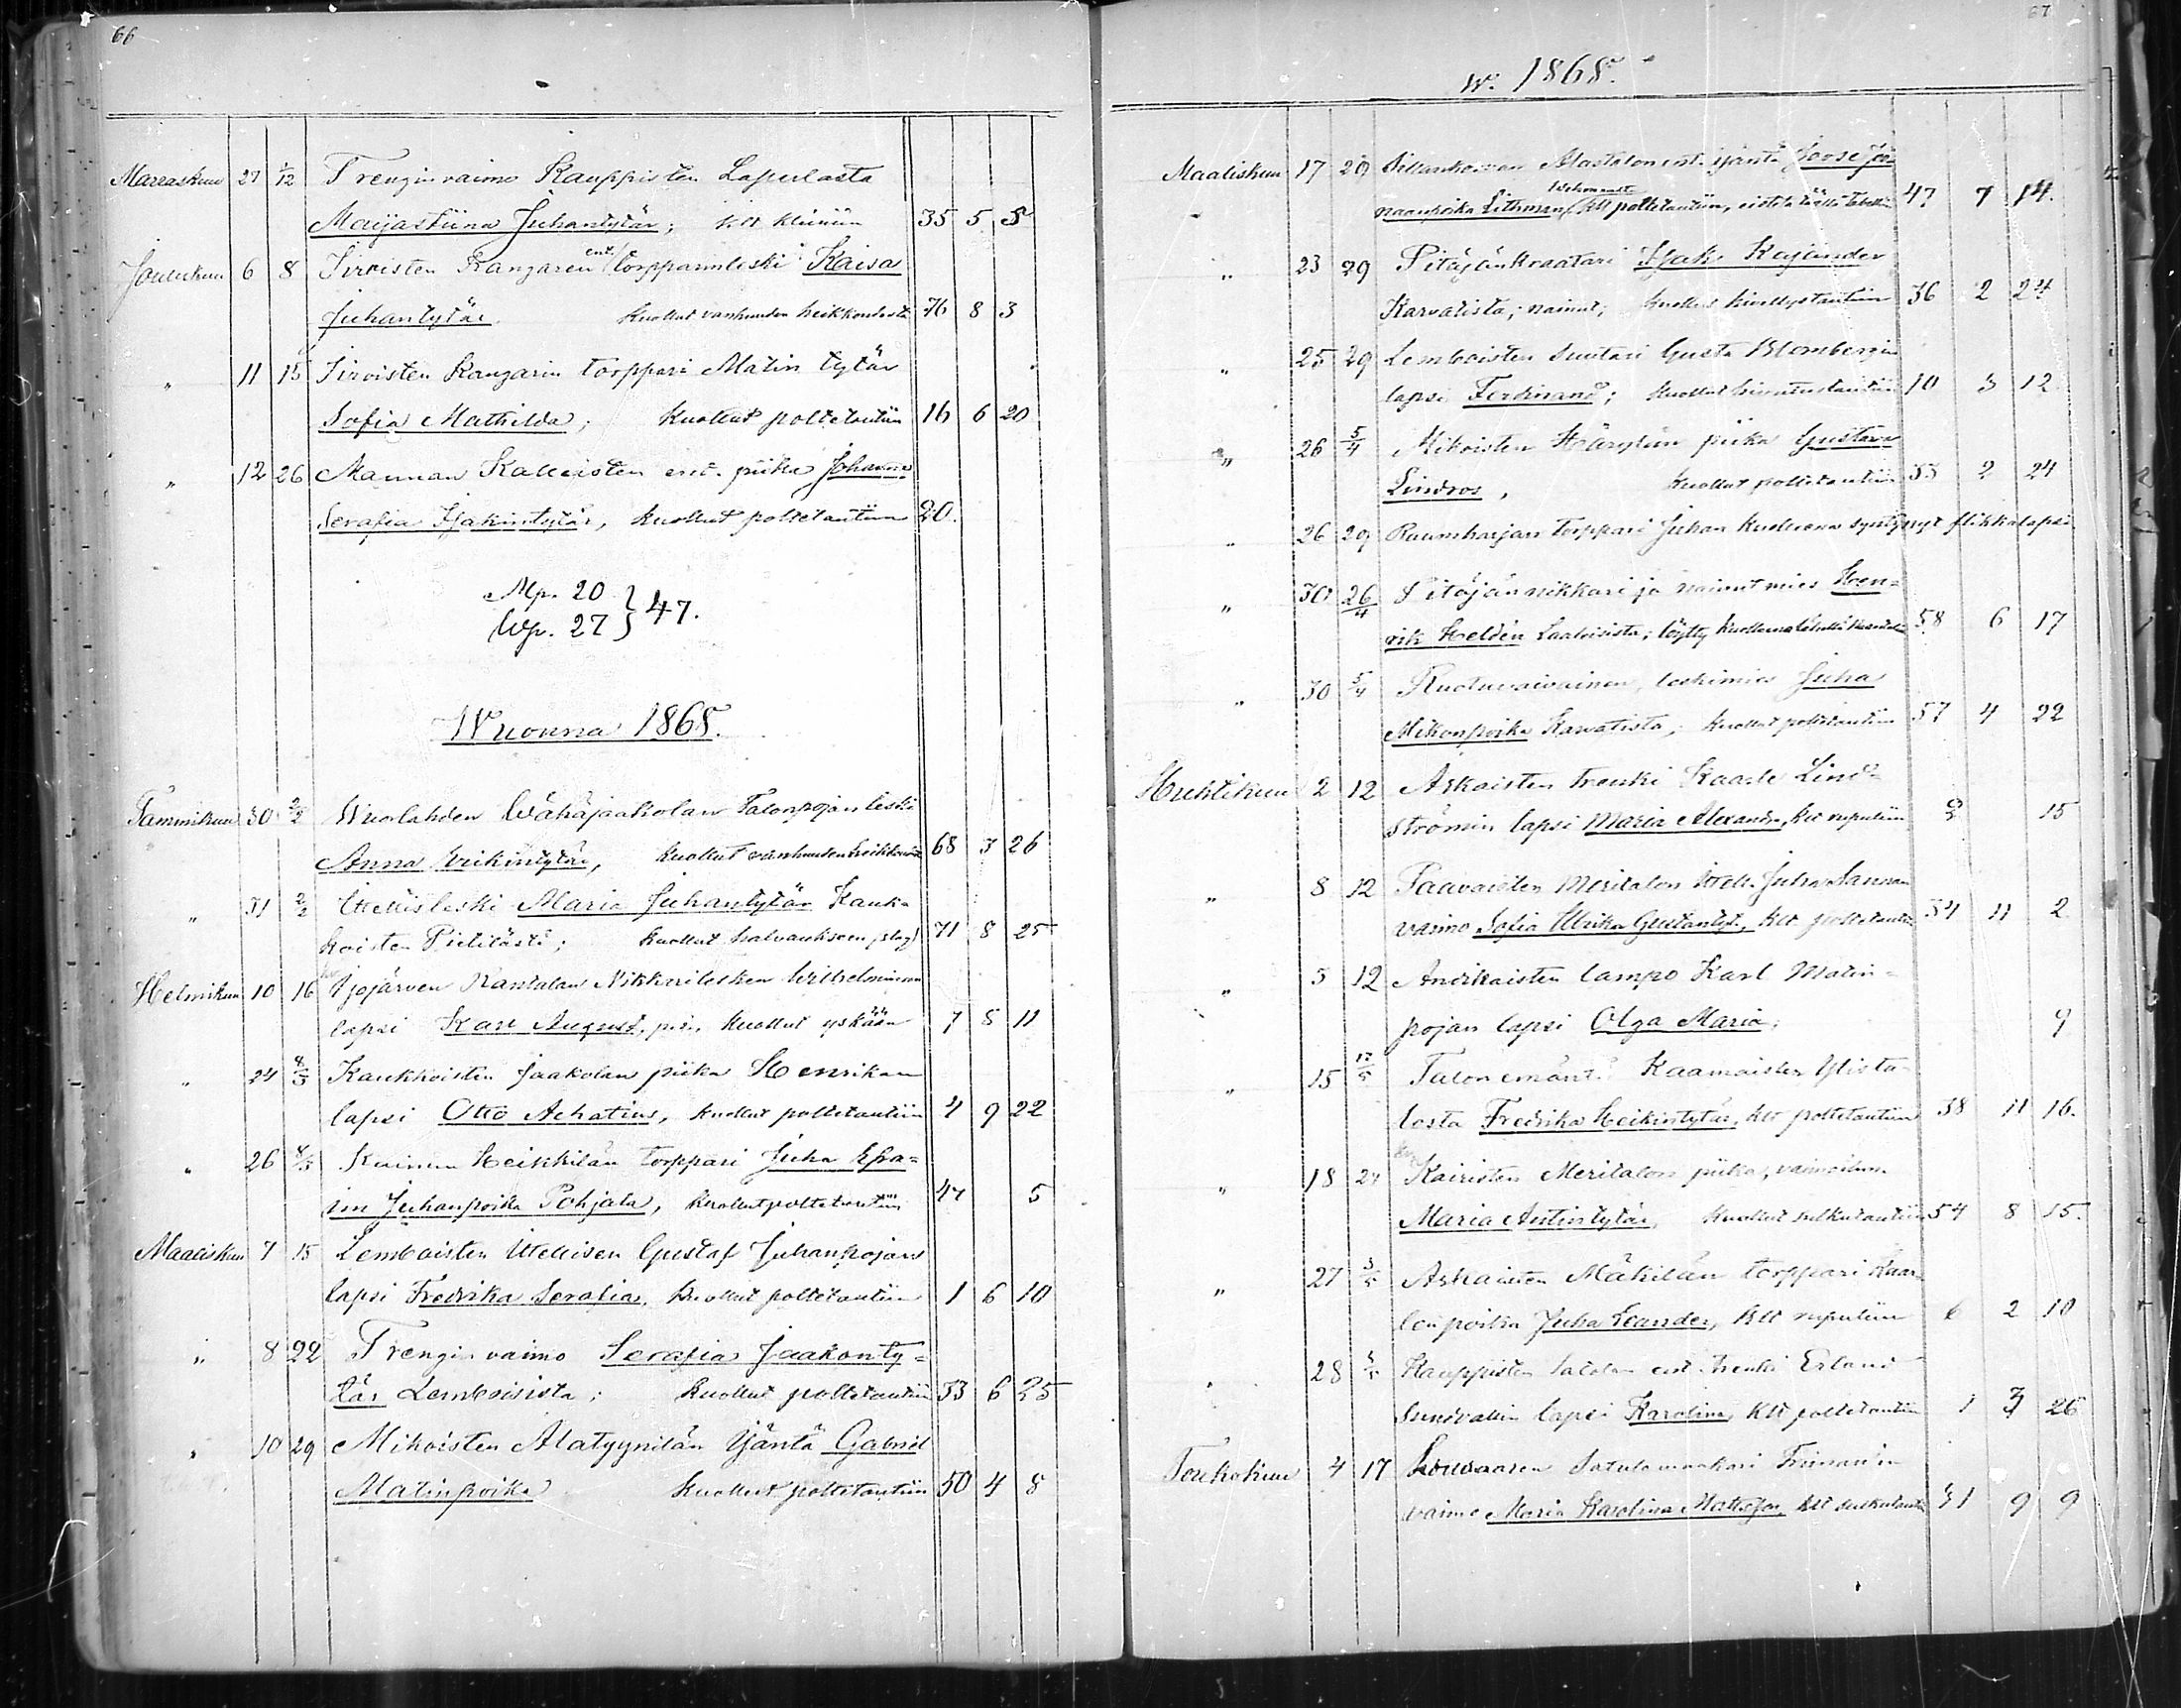 66
Marraskuu 27 1/12 Trengin vaimo Kauppisten Laperlasta
Maijastiina Juhantytär; klt 35 5 5
Joulukuu 6 8 Sirvisten Kangaren ent. torpparinleski Kaisa
Juhantytär. kuollut vanhuuden heikkoudesta 76 8 3
" 11 15 Sirvisten Kangarin torppari Matin tytär
Sofia Mathilda; kuollut poltetautiin 16 6 20
" 12 26 Mannan Kalleisten ent. piika Johanna
Serafia Isakintytär, kuollut poltetautiin 20.
Mp. 20
Wp. 27 } 47.
Wuonna 1868.
Tammikuu 30 2/2 Wuolahden Wähäjaakolan Talonpojan leski
Anna Erikintytär, kuollut vanhuuden heikkouteen 68 3 26
" 31 2/2 Itellisleski Maria Juhantytär Kauk-
koisten Pietilästä; kuollut halvaukseen (slag) 71 8 25
Helmikuu 10 16 Ijojärven Rantalan Nikkarilesken Wilhelminan
lapsi Karl August, kuollut yskään 7 8 11
" 24 8/3 Kaukkoisten Jaakolan piika Henrikan
lapsi Otto Achatius, kuollut poltetautiin 4 9 22
" 26 8/3 Kairinen Heikkilän torppari Juha Efra-
im Juhanpoika Pohjala, kuollut poltetautiin 47 5
Maaliskuu 7 15 Lemboisten Itellisen Gustaf Juhanpojan
lapsi Fredrika Serafia, kuollut poltetautiin 1 6 10
" 8 22 Trengin vaimo Serafia Jaakonty-
tär Lemboisista; kuollut poltetautiin 33 6 25
" 10 29 Mikoisten Alatyynilän Isäntä Gabriel
Matinpoika kuollut poltetautiin 50 4 8
67
W. 1868.
Maaliskuu 17 29 Alastalon ent. isäntä Joose Joo-
naanpoika Lithman, klt poltetautiin, 47 7 14.
" 23 29 Pitäjänkraatari Isak Kajander
Karvatista; nainut; kuollut 36 2 24
" 25 29 Lemboisten Suutari Gusta Blombergin
lapsi Ferdinand; kuollut 10 3 12
" 26 5/4 Mikoisten piika Gustava
Lindros, kuollut poltetautiin 33 2 24
" 26 29 Raumharjan torppari Juhan kuolleena syntynyt flikkalapsi
" 30 26/4 Pitäjännikkari ja nainut mies Hen-
rik Heldén löytty kuolleena 58 6 17
" 30 5/4 Ruotuvaivainen, leskimies Juha
Mikonpoika Karvatista; kuollut poltetautiin 57 4 22
Huhtikuu 2 12 Askaisten trenki Kaarle Lind-
strömin lapsi Maria Alexandra, klt rupuliin 2 15
" 8 12 Paavaisten Meritalon Itell. Juha Sannan
vaimo Sofia Ulrika Gustantyt., klt poltetautiin 34 11 2
" 5 12 Andikaisten lampo Karl Matin-
pojan lapsi Olga Maria; 9
" 15 17/5 Talon emäntä Kaamaisten Ylista-
losta Fredrika Heikintytär, klt poltetautiin 38 11 16.
" 18 24 Kairisten Meritalon piika, vaivainen
Maria Antintytär, kuollut 54 8 15.
" 27 3/5 Askaisten Mäkilän torppari Kaar-
len poika Juha Leander, klt rupuliin 6 2 10
" 28 3/5 Kauppisten ent. trenki Erland
Sundvallin lapsi Karolina, klt poltetautiin 1 3 26
Toukokuu 4 17 Satulamaakari
vaimo Maria Karolina klt 31 9 9